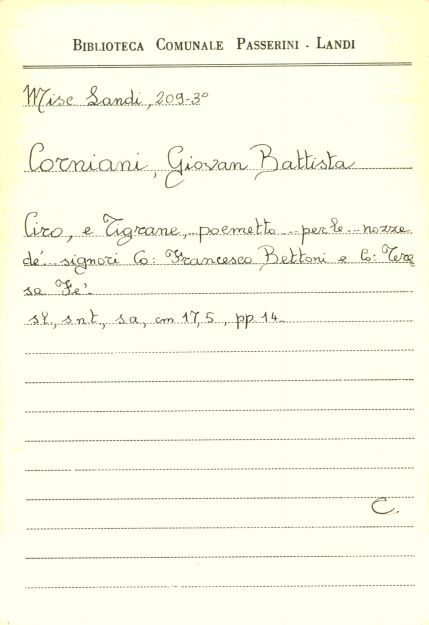 BIBLIOTECA COMUNALE PASSERINI - LANDI
Misc Landi, 209-3°
Corniani, Giovan Battista
Ciro, e Tigrane, poemetto per le nozze
de' signori Co: Francesco Bettoni e Co: Tere
sa Fe'.
sl, snt, sa, cm 17,5, pp 14
C.